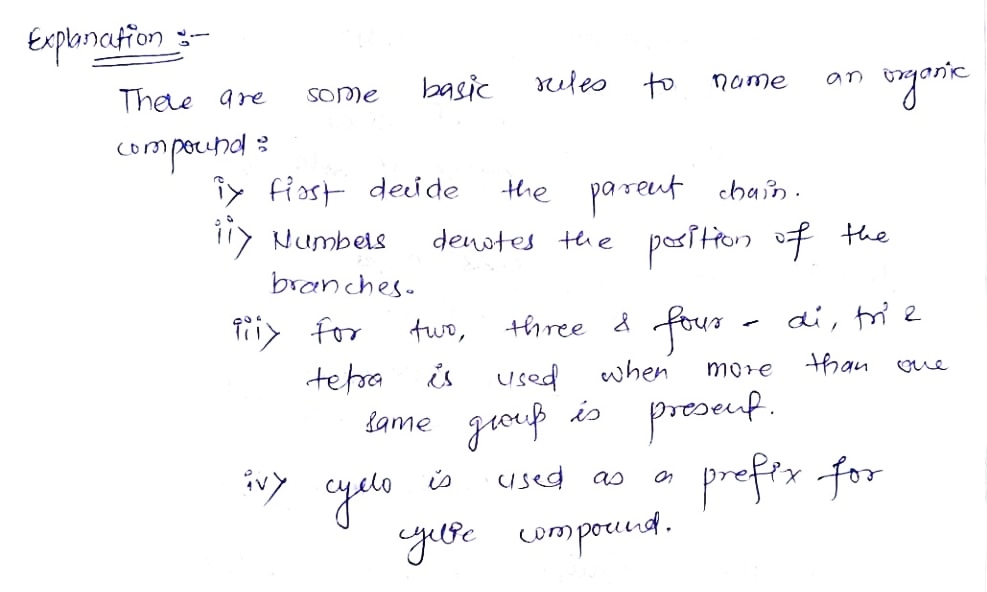 Explanation :-
There are some basic rules to name an organic
compound :
i> first decide the parent chain.
ii> Numbers denotes the position of the
branches.
iii> for two, three & four - di, tri &
tetra is used when more than one
same group is present.
iv> cyclo is used as a prefix for
cyclic compound.